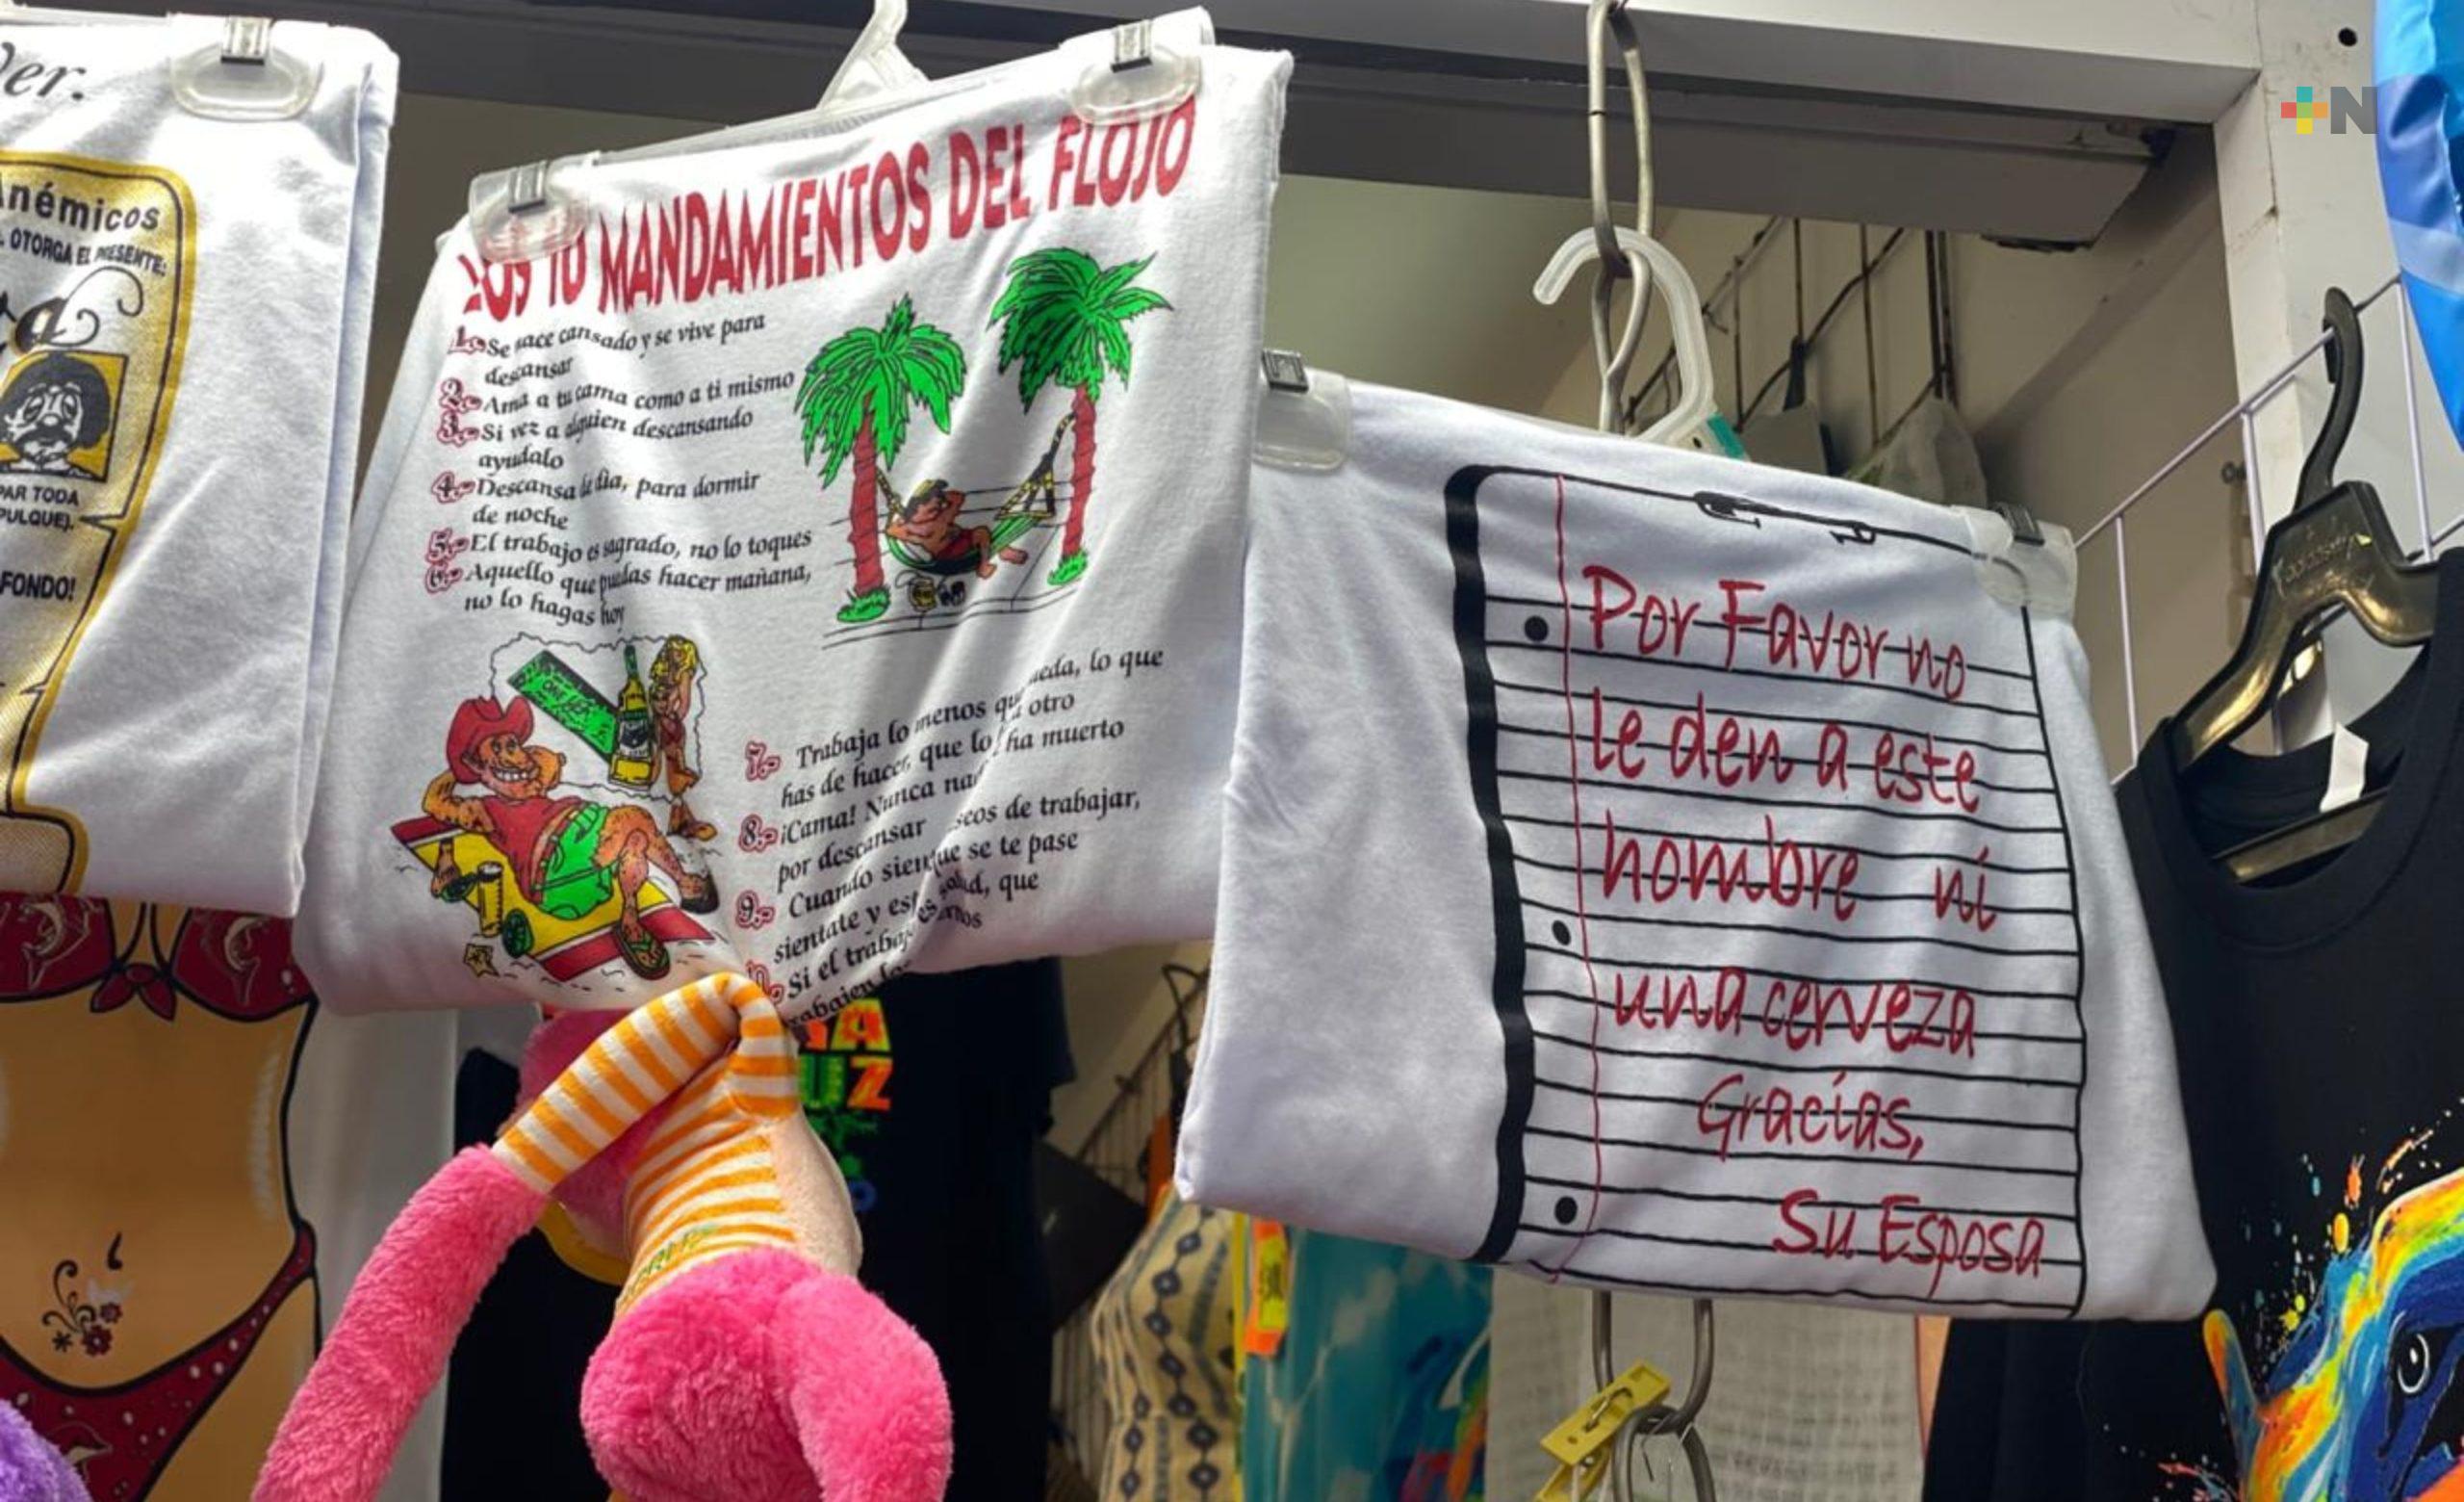 er.
Anémicos
OTORGA EL PRESENTE:
PAR TODA
PULQUE).
FONDO!
LOS 10 MANDAMIENTOS DEL FLOJO
1.- Se nace cansado y se vive para
descansar
2.- Ama a tu cama como a ti mismo
3.- Si vez a alguien descansando
ayudalo
4.- Descansa de dia, para dormir
de noche
5.- El trabajo es sagrado, no lo toques
6.- Aquello que puedas hacer mañana,
no lo hagas hoy
7.- Trabaja lo menos que lo que
has de hacer, que lo otro
8.- ¡Cama! Nunca ha muerto
por descansar
9.- Cuando de trabajar,
sientate y que se te pase
10.- Si el es salud, que
Por Favor no
le den a este
hombre ni
una cerveza
Gracias,
Su Esposa
+N